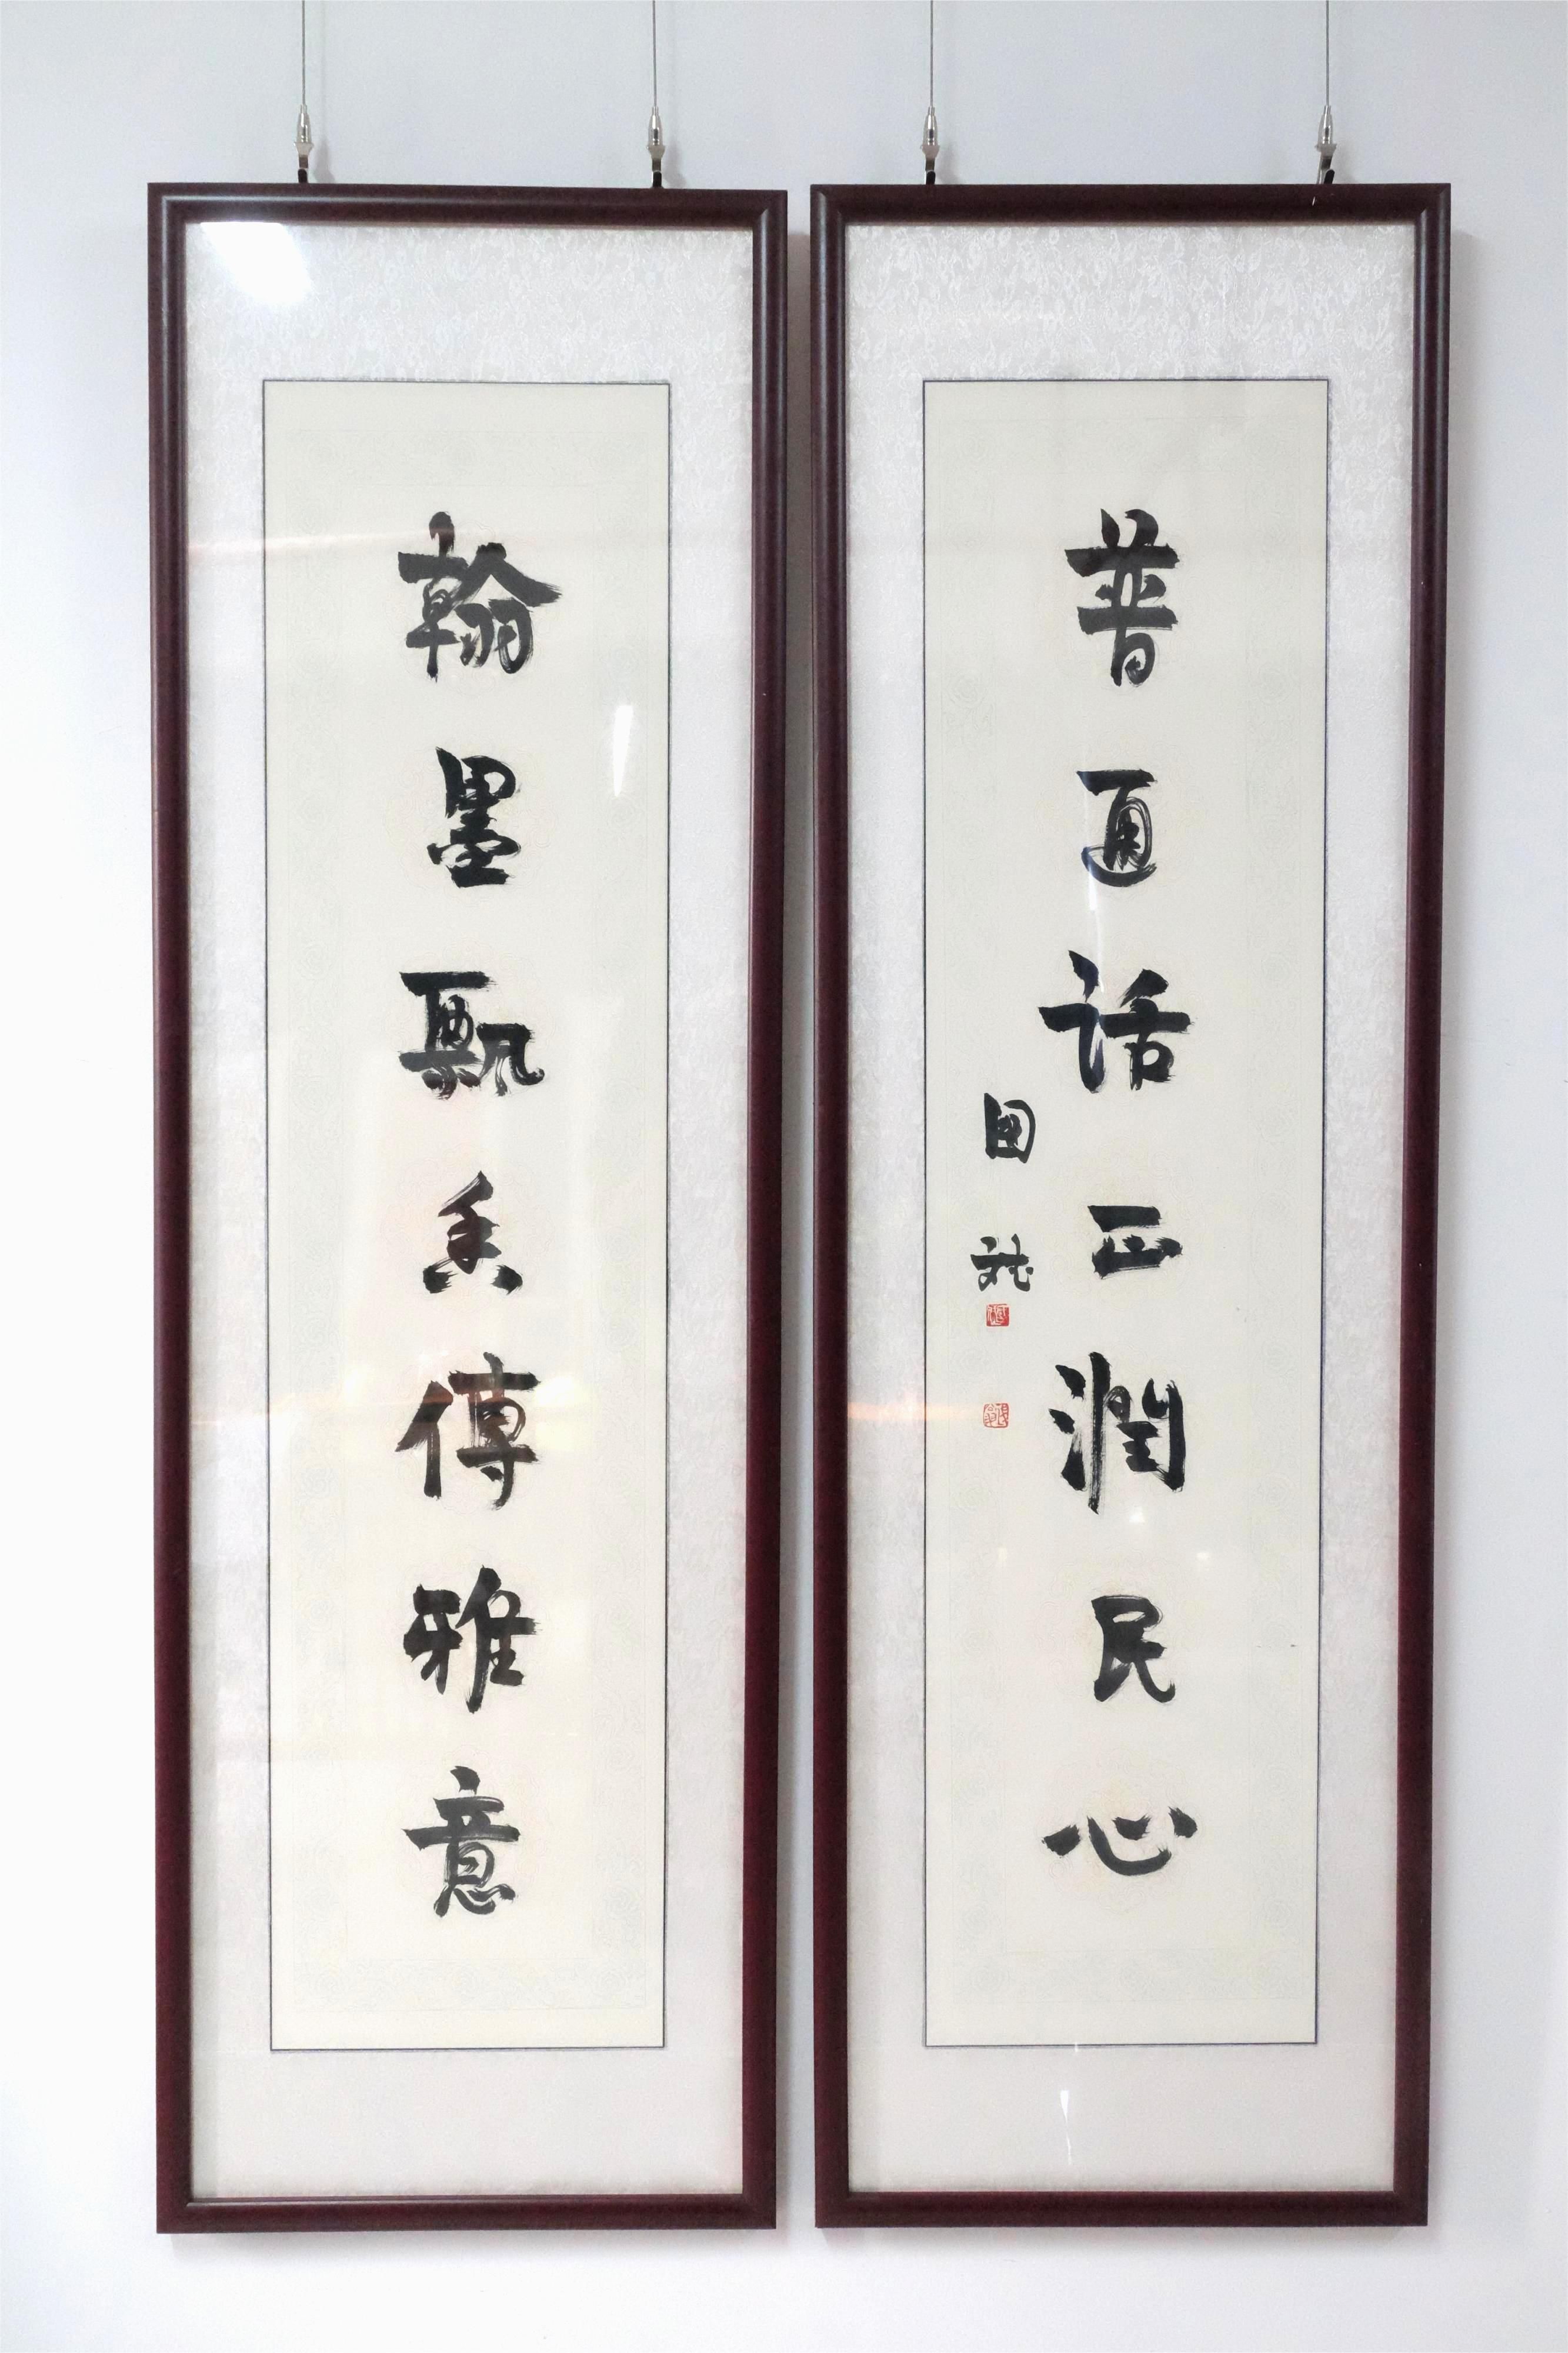 翰墨飘香傳雅意
普通话正潤民心
国斌